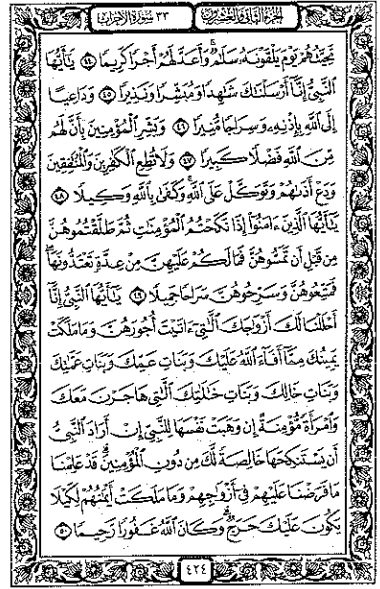 الجزء الثاني والعشرون ٣٣ سورة الأحزاب
تَحِيَّتُهُمْ يَوْمَ يَلْقَوْنَهُۥ سَلَٰمٌ ۚ وَأَعَدَّ لَهُمْ أَجْرًا كَرِيمًا ٤٤ يَٰٓأَيُّهَا
ٱلنَّبِىُّ إِنَّآ أَرْسَلْنَٰكَ شَٰهِدًا وَمُبَشِّرًا وَنَذِيرًا ٤٥ وَدَاعِيًا
إِلَى ٱللَّهِ بِإِذْنِهِۦ وَسِرَاجًا مُّنِيرًا ٤٦ وَبَشِّرِ ٱلْمُؤْمِنِينَ بِأَنَّ لَهُم
مِّنَ ٱللَّهِ فَضْلًا كَبِيرًا ٤٧ وَلَا تُطِعِ ٱلْكَٰفِرِينَ وَٱلْمُنَٰفِقِينَ
وَدَعْ أَذَىٰهُمْ وَتَوَكَّلْ عَلَى ٱللَّهِ ۚ وَكَفَىٰ بِٱللَّهِ وَكِيلًا ٤٨
يَٰٓأَيُّهَا ٱلَّذِينَ ءَامَنُوٓا۟ إِذَا نَكَحْتُمُ ٱلْمُؤْمِنَٰتِ ثُمَّ طَلَّقْتُمُوهُنَّ
مِن قَبْلِ أَن تَمَسُّوهُنَّ فَمَا لَكُمْ عَلَيْهِنَّ مِنْ عِدَّةٍ تَعْتَدُّونَهَا ۖ
فَمَتِّعُوهُنَّ وَسَرِّحُوهُنَّ سَرَاحًا جَمِيلًا ٤٩ يَٰٓأَيُّهَا ٱلنَّبِىُّ إِنَّآ
أَحْلَلْنَا لَكَ أَزْوَٰجَكَ ٱلَّٰتِىٓ ءَاتَيْتَ أُجُورَهُنَّ وَمَا مَلَكَتْ
يَمِينُكَ مِمَّآ أَفَآءَ ٱللَّهُ عَلَيْكَ وَبَنَاتِ عَمِّكَ وَبَنَاتِ عَمَّٰتِكَ
وَبَنَاتِ خَالِكَ وَبَنَاتِ خَٰلَٰتِكَ ٱلَّٰتِى هَاجَرْنَ مَعَكَ
وَٱمْرَأَةً مُّؤْمِنَةً إِن وَهَبَتْ نَفْسَهَا لِلنَّبِىِّ إِنْ أَرَادَ ٱلنَّبِىُّ
أَن يَسْتَنكِحَهَا خَالِصَةً لَّكَ مِن دُونِ ٱلْمُؤْمِنِينَ ۗ قَدْ عَلِمْنَا
مَا فَرَضْنَا عَلَيْهِمْ فِىٓ أَزْوَٰجِهِمْ وَمَا مَلَكَتْ أَيْمَٰنُهُمْ لِكَيْلَا
يَكُونَ عَلَيْكَ حَرَجٌ ۗ وَكَانَ ٱللَّهُ غَفُورًا رَّحِيمًا ٥٠
٤٢٤